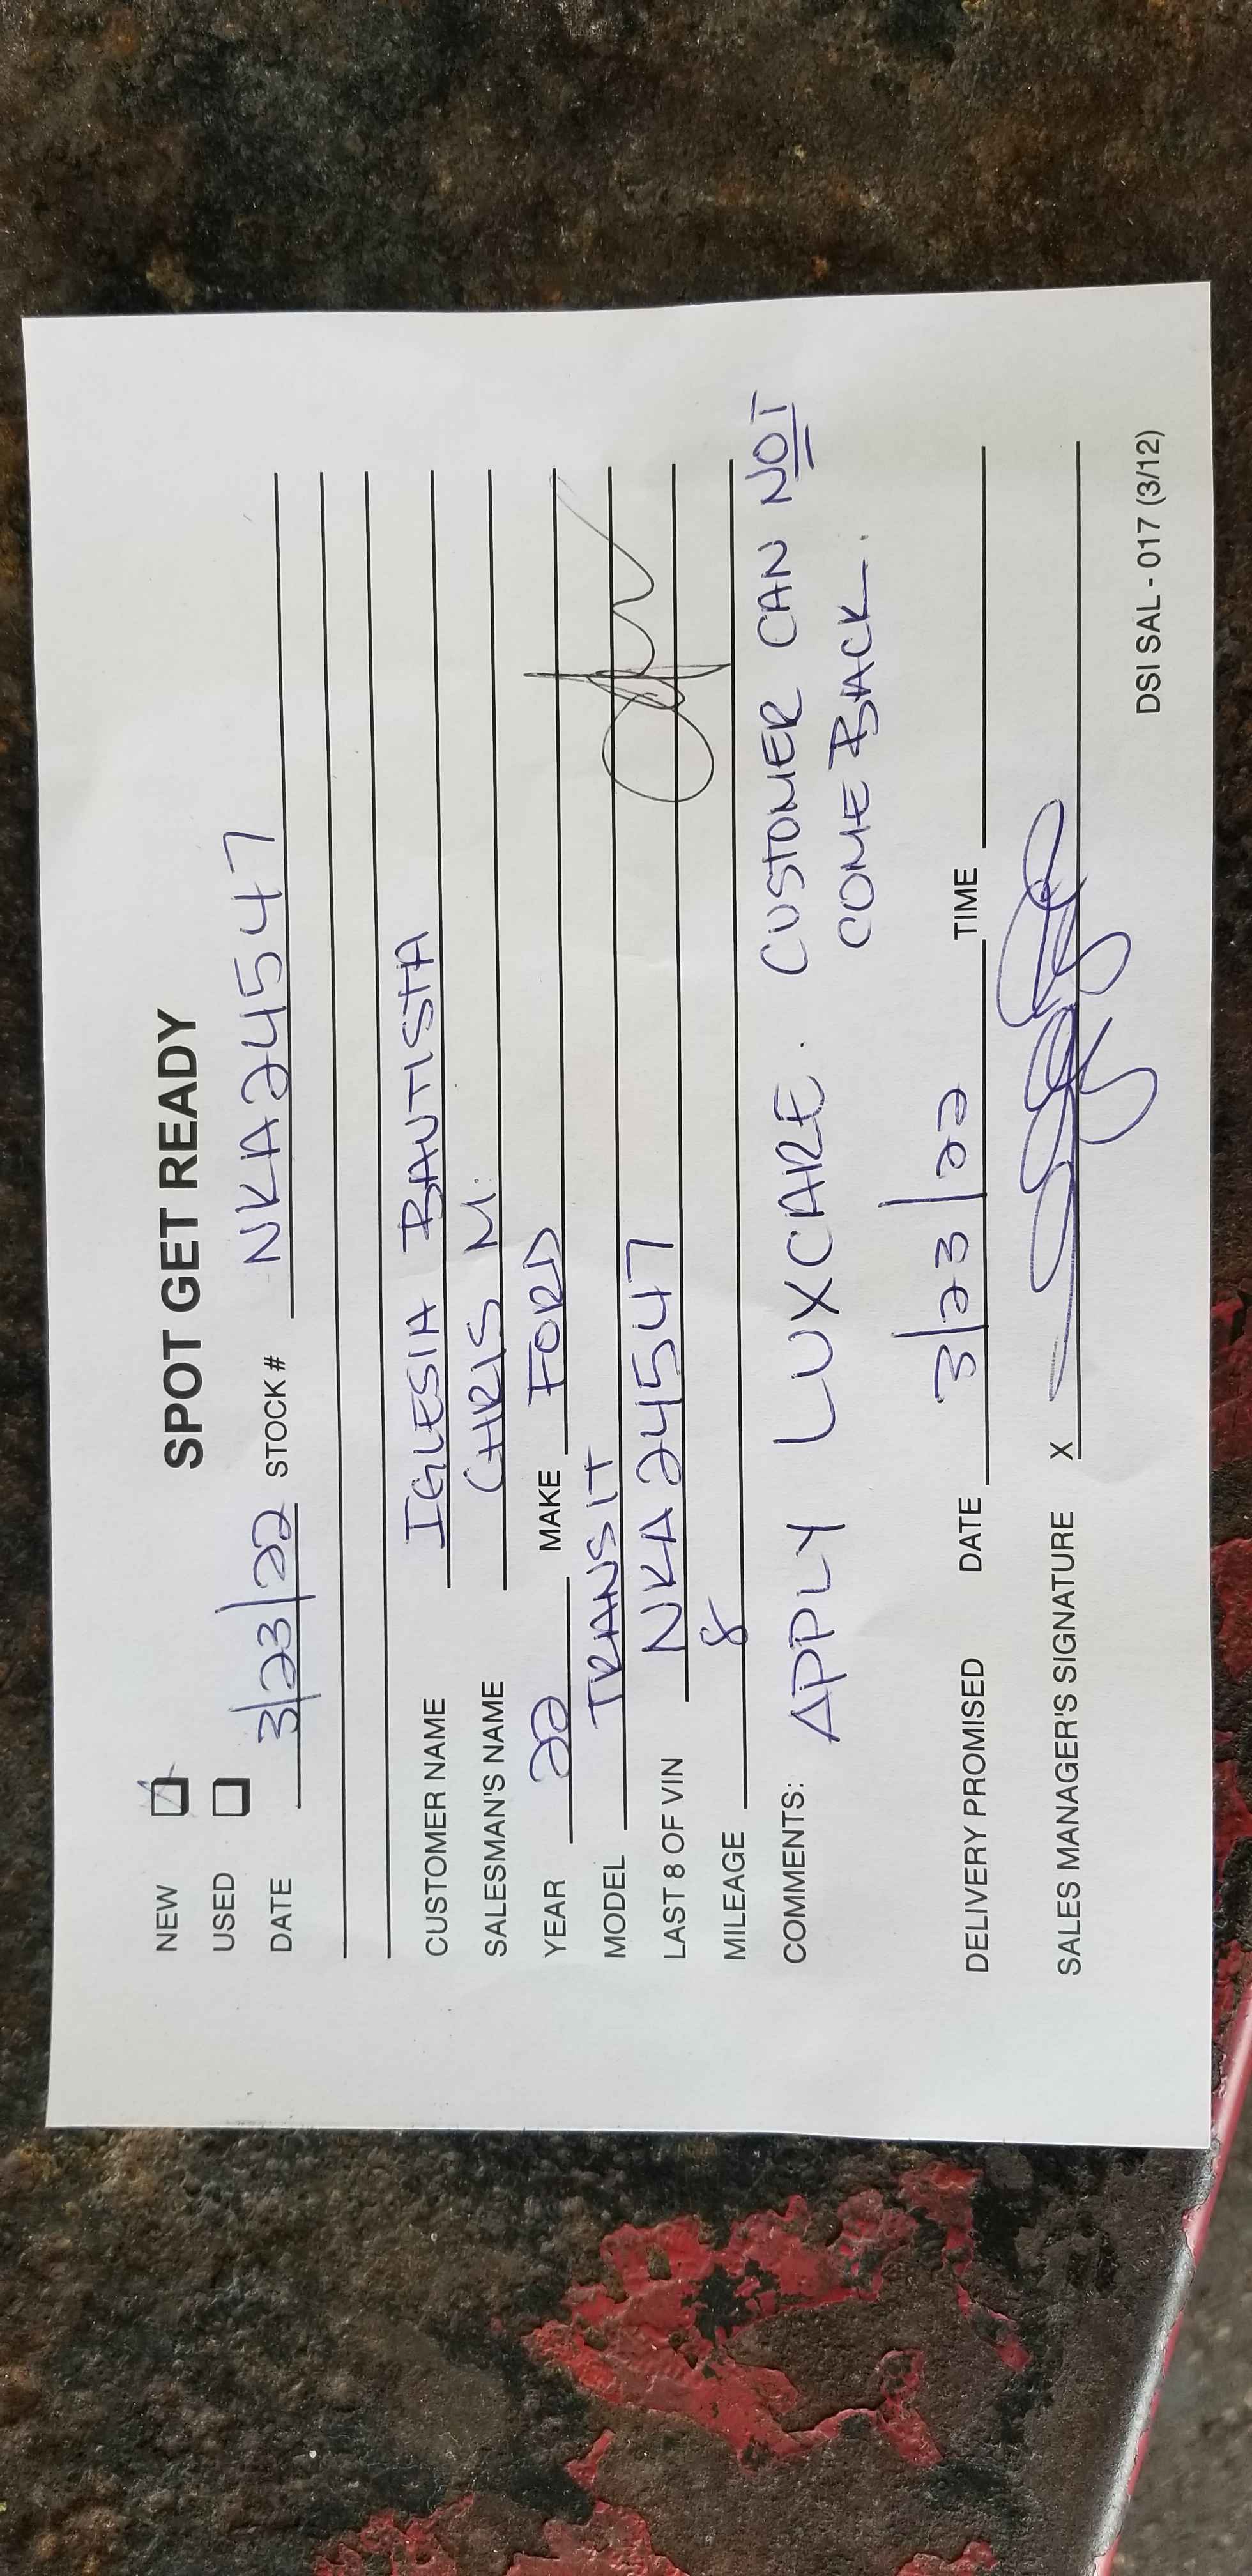 SPOT GET READY
NEW
USED
DATE 3/23/22 STOCK # NKA24547
CUSTOMER NAME IGLESIA BAUTISTA
SALESMAN'S NAME CHRIS M.
YEAR 22 MAKE FORD
MODEL TRANSIT
LAST 8 OF VIN NKA24547
MILEAGE 8
COMMENTS: APPLY LUXCARE. CUSTOMER CAN NOT
COME BACK.
DELIVERY PROMISED DATE 3/23/22 TIME
SALES MANAGER'S SIGNATURE X
DSI SAL - 017 (3/12)